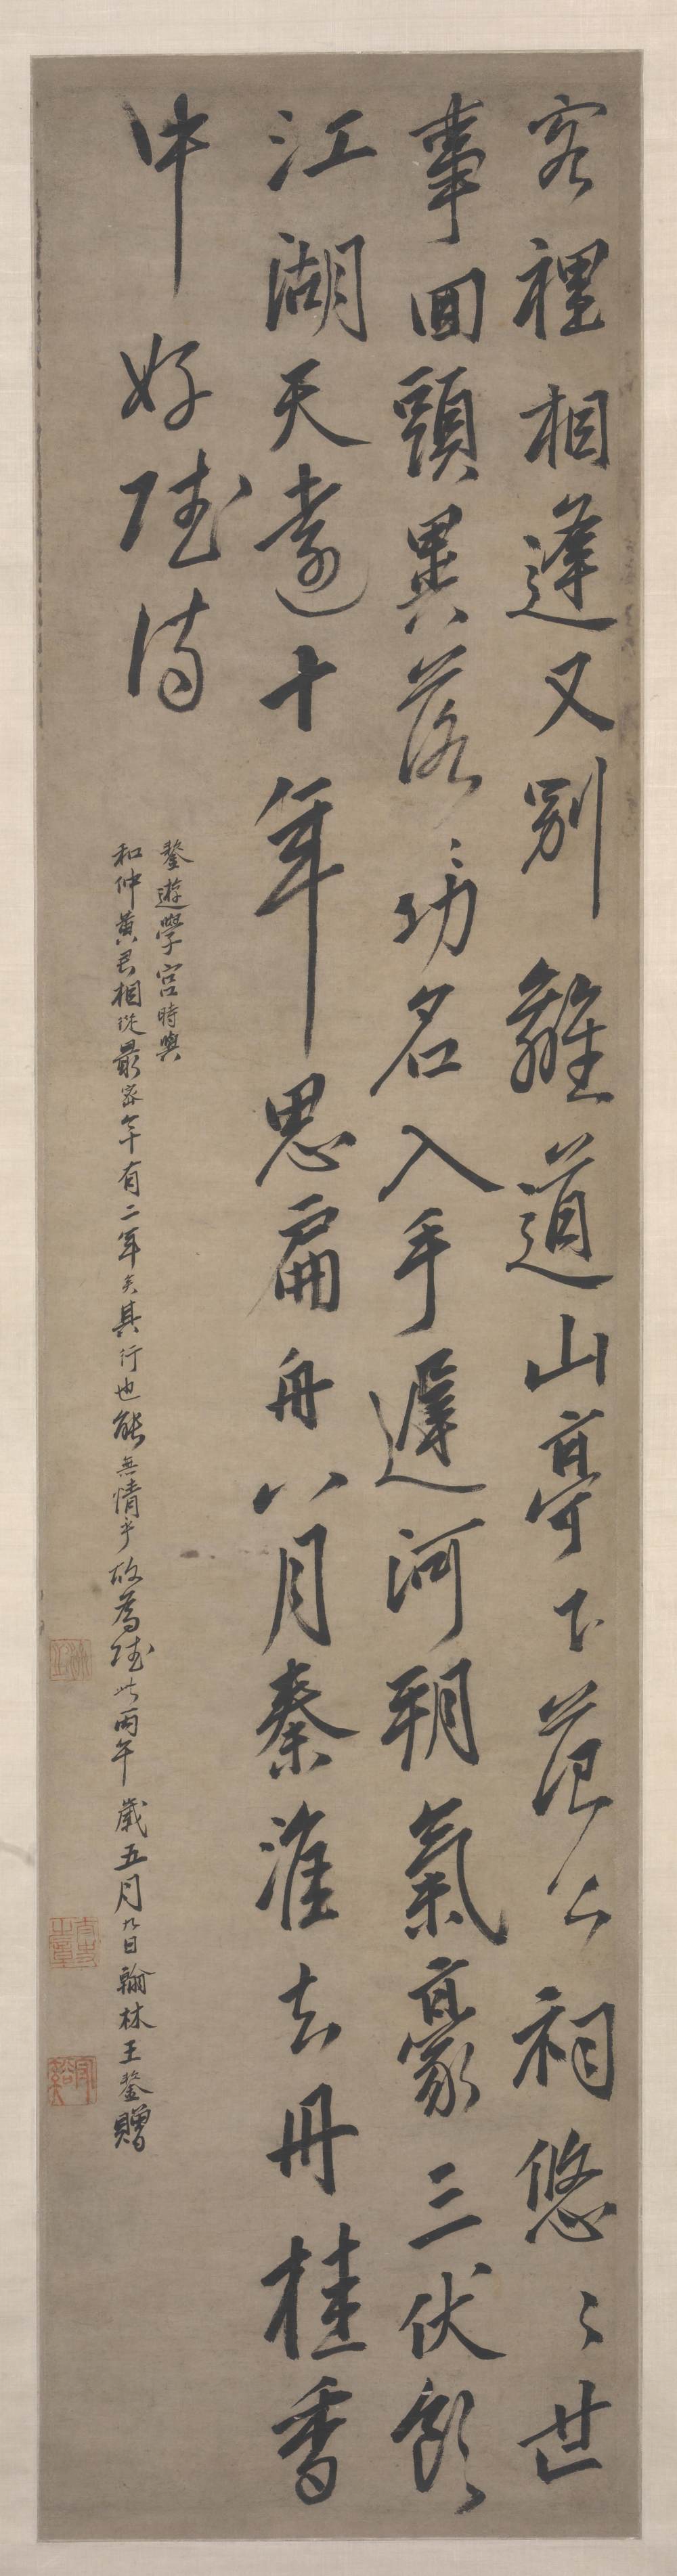 客裡相逢又別離道山亭下范公祠悠〻世
事回頭異落〻功名入手遲河朔氣豪三伏飲
江湖天遠十年思扁舟八月秦淮去丹桂香
中好賦詩
鏊遊學宮時與
和仲黃君相從最密有二年矣其行也能無情乎故為賦此丙午歲五月九日翰林王鏊贈
太史之章